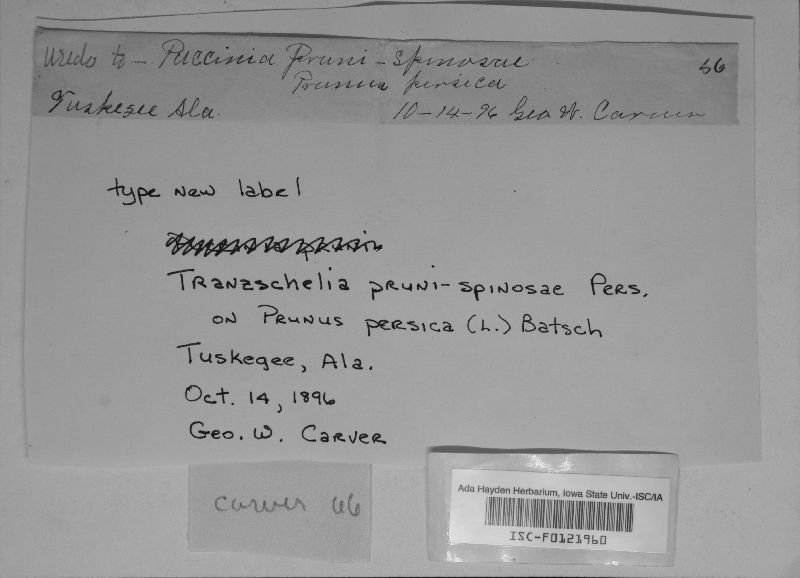 Uredo to - Puccinia Pruni-spinosae 66
Prunus persica
Tuskegee Ala. 10-14-96 Geo W. Carver
type new label
Tranzschelia pruni-spinosae Pers.
on Prunus persica (L.) Batsch
Tuskegee, Ala.
Oct. 14, 1896
Geo. W. Carver
carver 66
Ada Hayden Herbarium, Iowa State Univ.-ISC/IA
ISC-F0121960